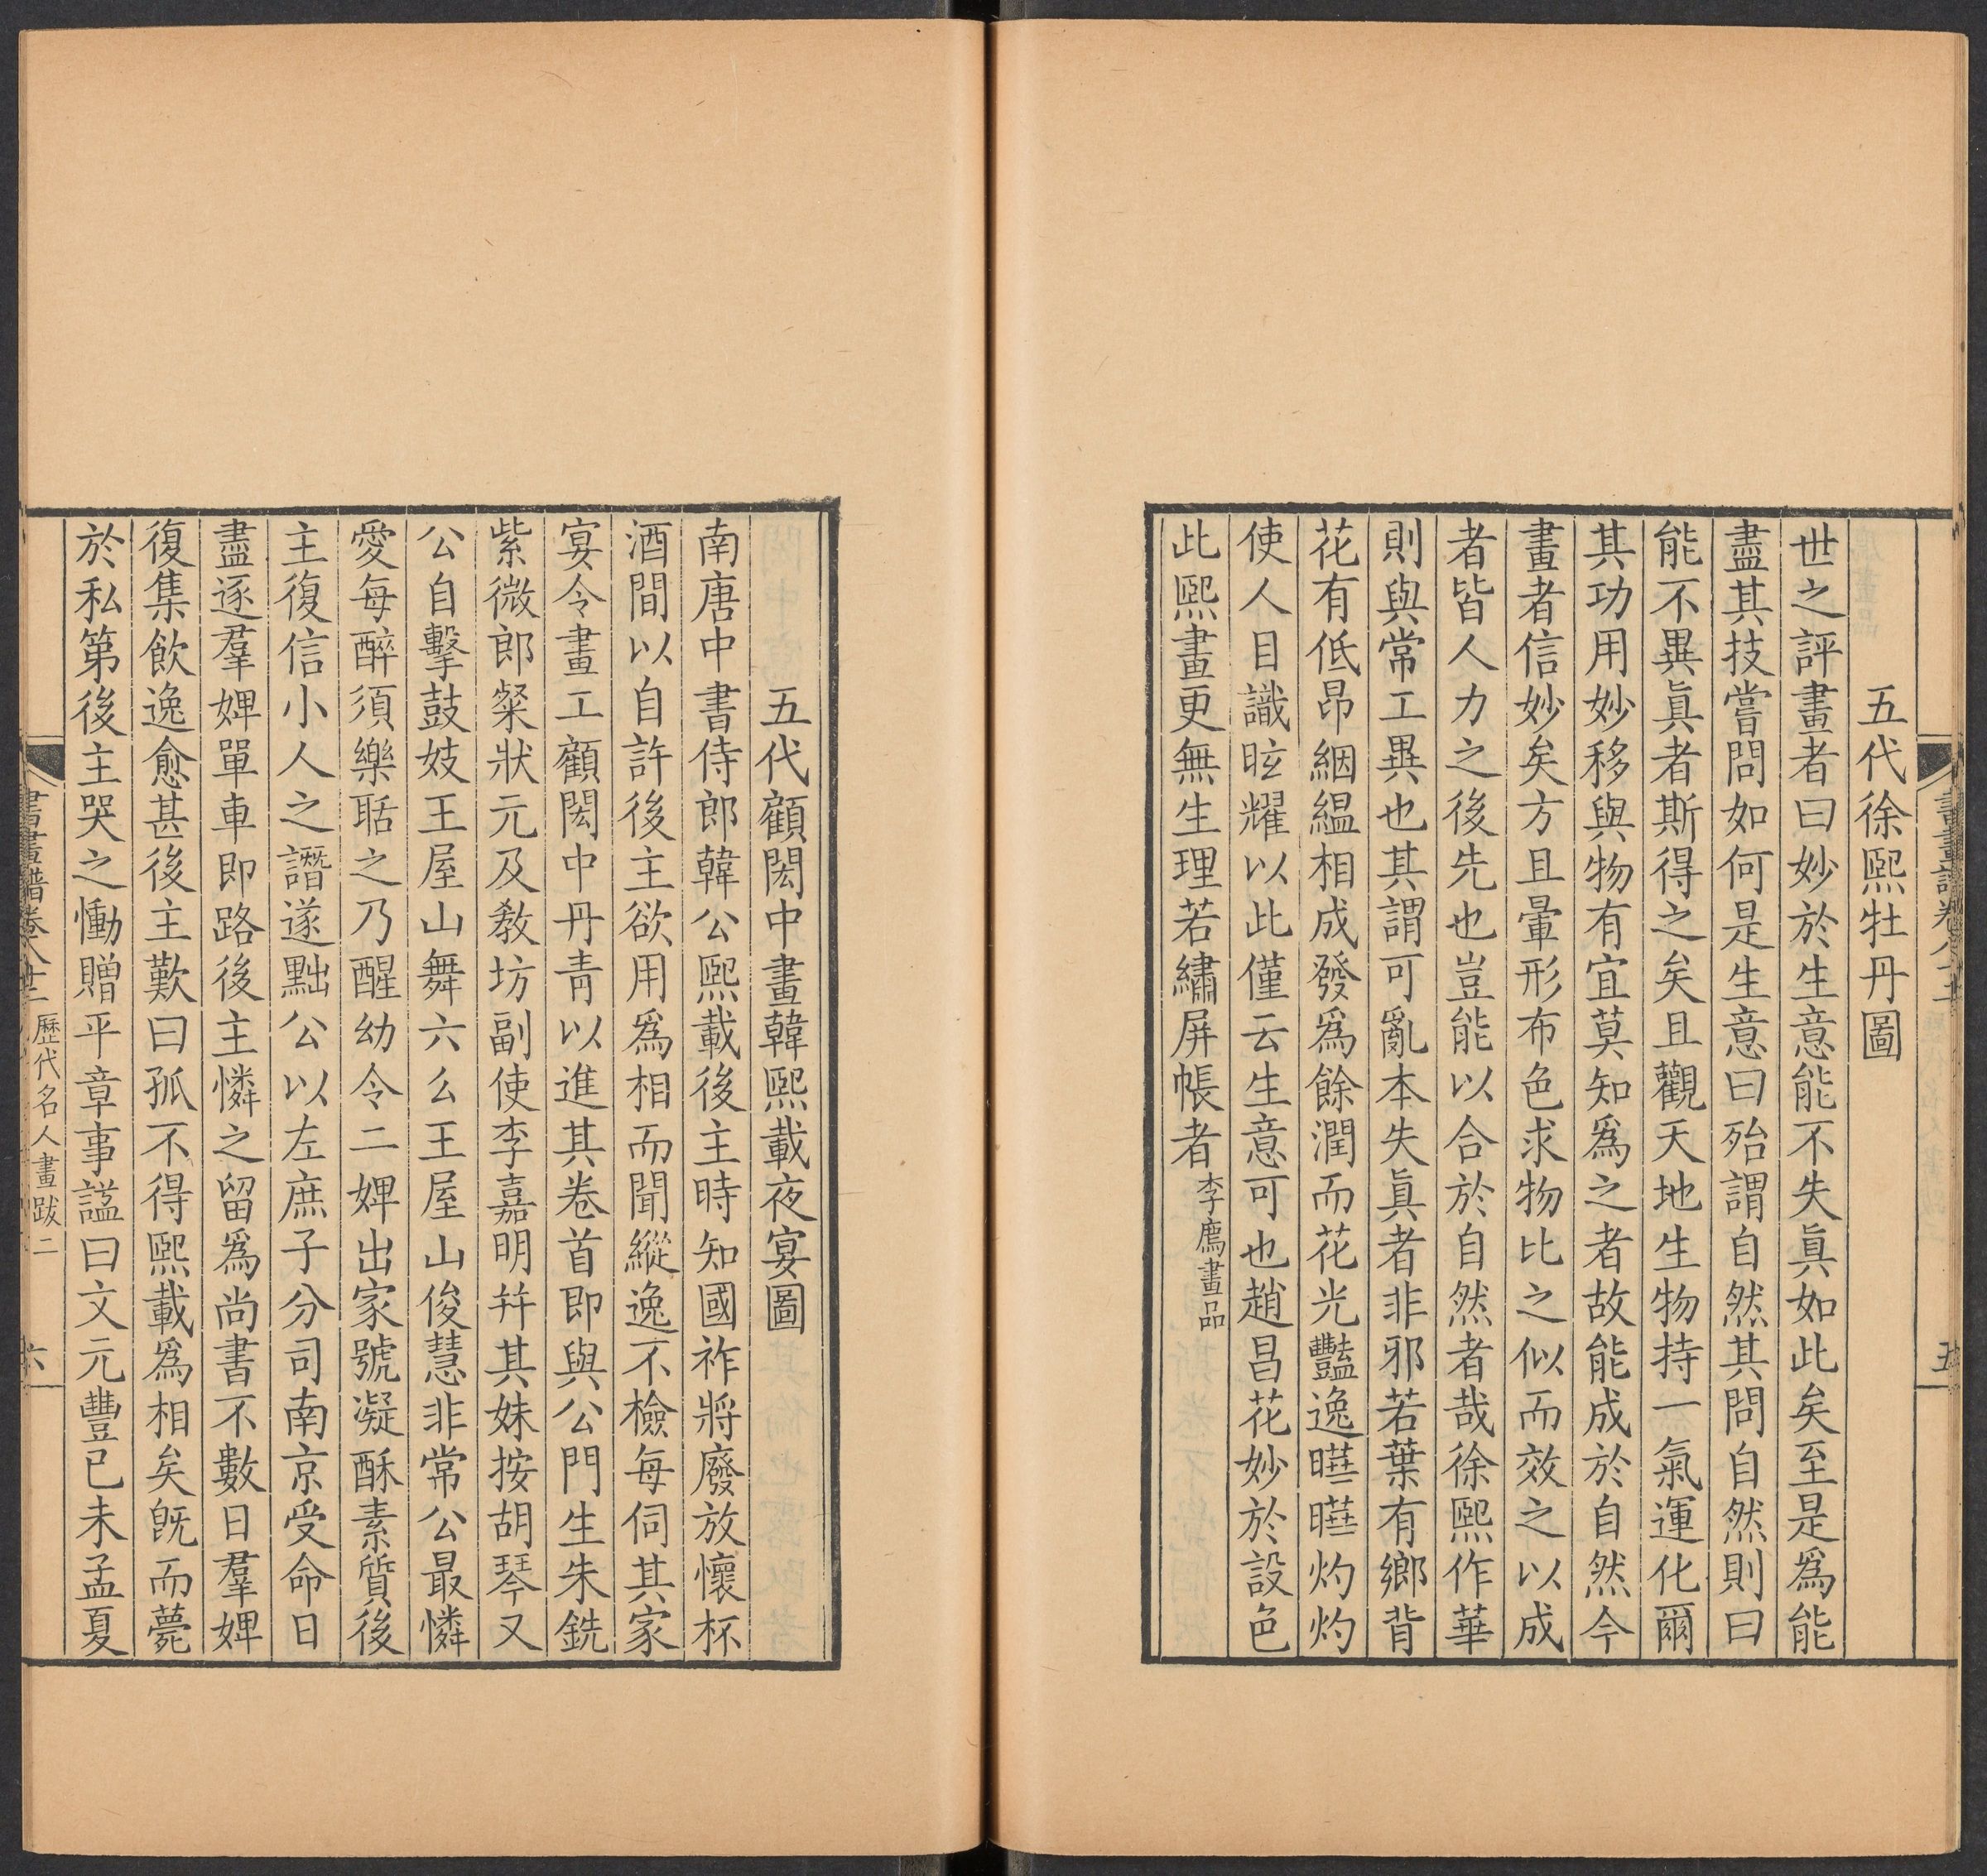 五代徐熙牡丹圖
世之評畫者曰妙於生意能不失眞如此矣至是爲能
盡其技嘗問如何是生意曰殆謂自然其問自然則曰
能不異眞者斯得之矣且觀天地生物持一氣運化爾
其功用妙移與物有宜莫知爲之者故能成於自然今
畫者信妙矣方且暈形布色求物比之似而效之以成
者皆人力之後先也豈能以合於自然者哉徐熙作華
則與常工異也其謂可亂本失眞者非邪若葉有鄉背
花有低昂絪縕相成發爲餘潤而花光豔逸曄曄灼灼
使人目識眩耀以此僅云生意可也趙昌花妙於設色
此熙畫更無生理若繡屏帳者 李廌畫品
五代顧閎中畫韓熙載夜宴圖
南唐中書侍郎韓公熙載後主時知國祚將廢放懷杯
酒間以自許後主欲用爲相而聞縱逸不檢每伺其家
宴令畫工顧閎中丹青以進其卷首即與公門生朱銑
紫微郎粲狀元及敎坊副使李嘉明幷其妹按胡琴又
公自擊鼓妓王屋山舞六幺王屋山俊慧非常公最憐
愛每醉須樂聒之乃醒幼令二婢出家號凝酥素質後
主復信小人之譖遂黜公以左庶子分司南京受命日
盡逐羣婢單車即路後主憐之留爲尚書不數日羣婢
復集飮逸愈甚後主歎曰孤不得熙載爲相矣旣而薨
於私第後主哭之慟贈平章事謚曰文元豐己未孟夏
書畫譜卷八十二 歷代名人畫跋二 六